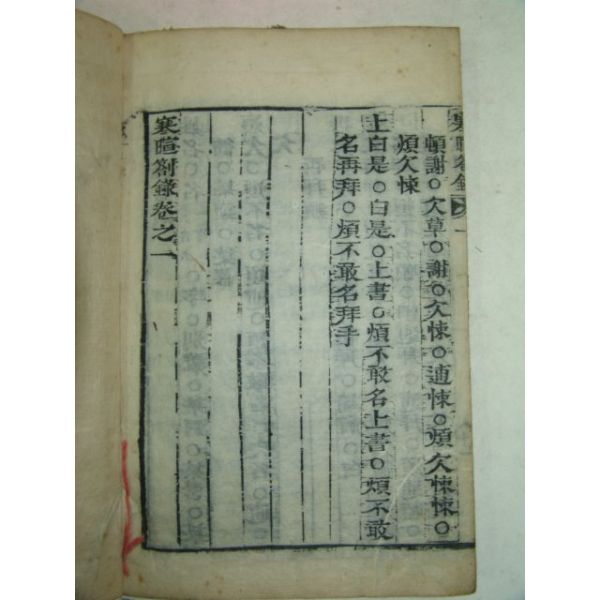 寒暄箚錄
頓謝○欠草○謝○欠悚○逋悚○煩欠悚悚○
煩欠悚
上白是○白是○上書○煩不敢名上書○煩不敢
名再拜○煩不敢名拜手
寒暄箚錄卷之一